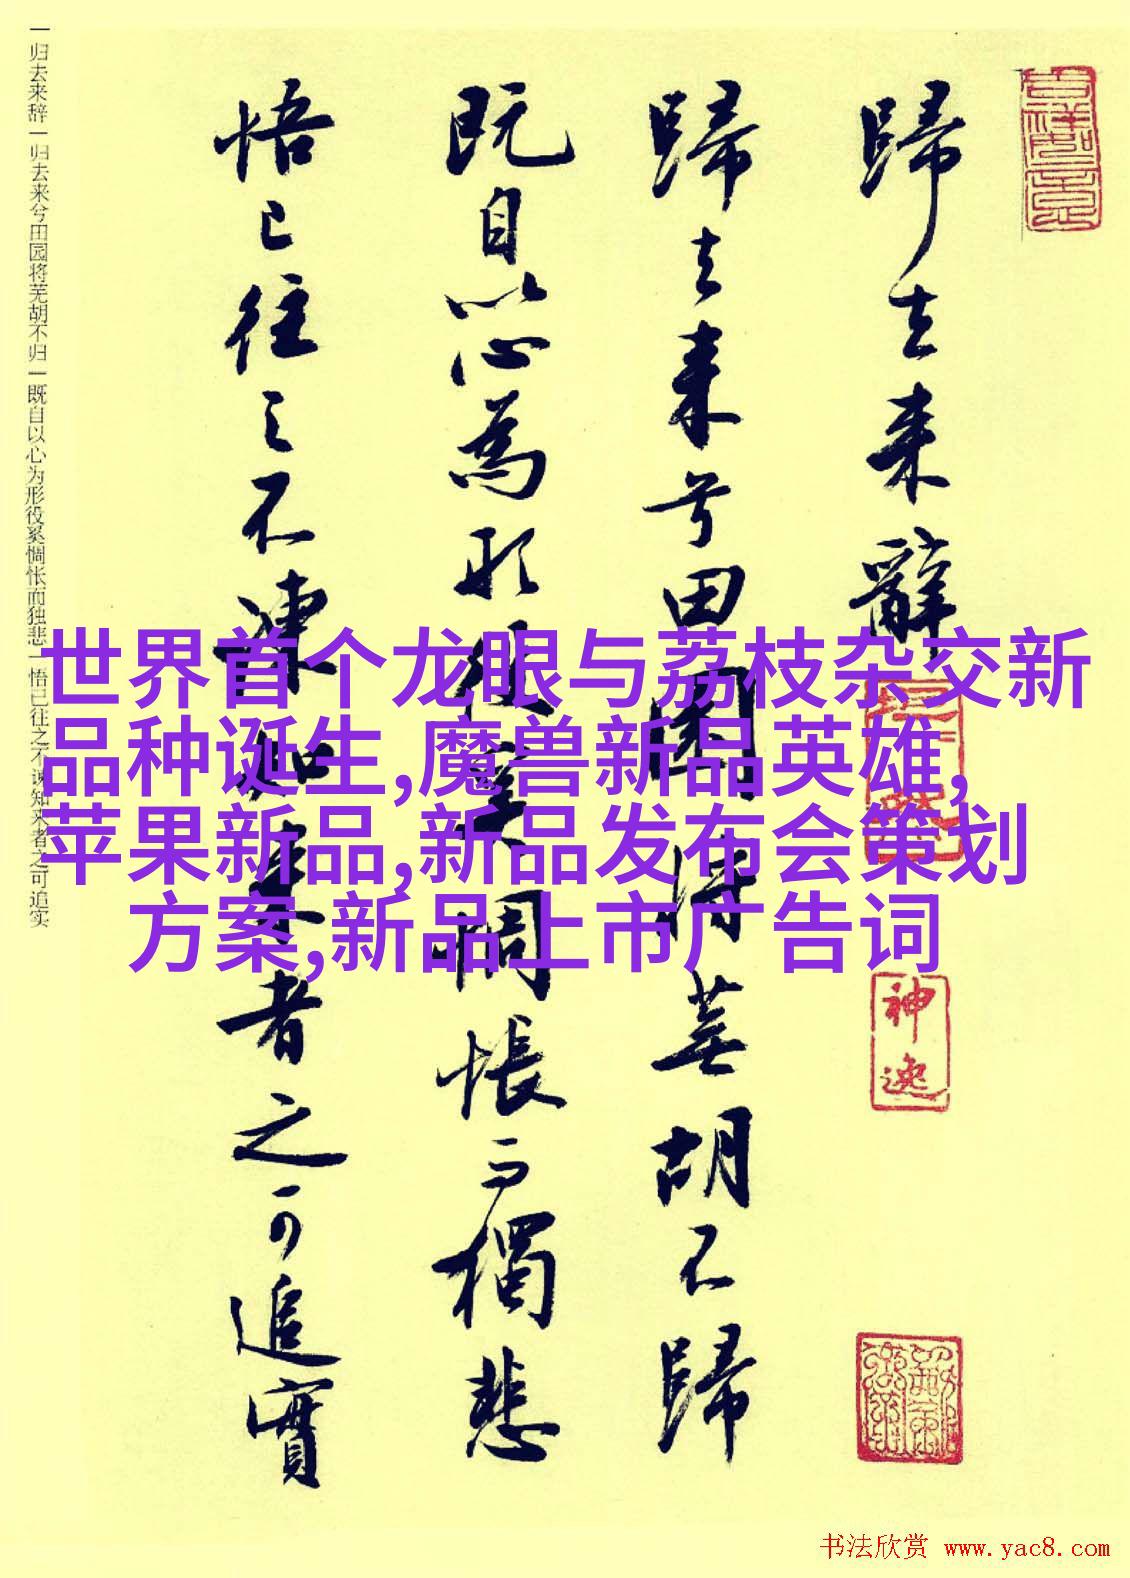 歸去来辭
歸去来兮田園将蕪胡不歸
既自以心為形役奚惆悵而獨悲
悟已往之不諫知来者之可追實
一归去来辞一归去来兮田园将芜胡不归一既自以心为形役奚惆怅而独悲一悟已往之不谏知来者之可追实
世界首个龙眼与荔枝杂交新
品种诞生,魔兽新品英雄,
苹果新品,新品发布会策划
方案,新品上市广告词
神逸
书法欣赏 www.yac8.com